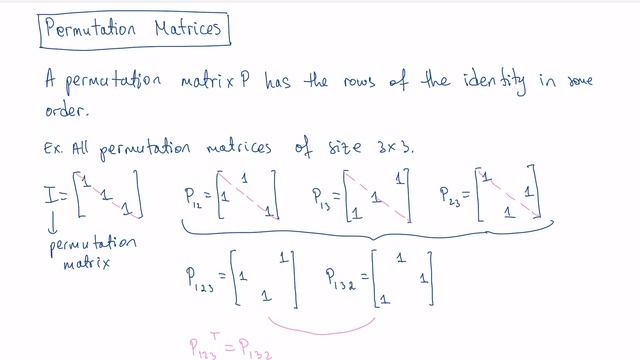 Permutation Matrices
A permutation matrix P has the rows of the identity in some
order.
Ex. All permutation matrices of size 3x3.
I = [1 1 1] P12 = [1 1 1] P13 = [1 1 1] P23 = [1 1 1]
permutation
matrix
P123 = [1 1 1] P132 = [1 1 1]
P123^T = P132